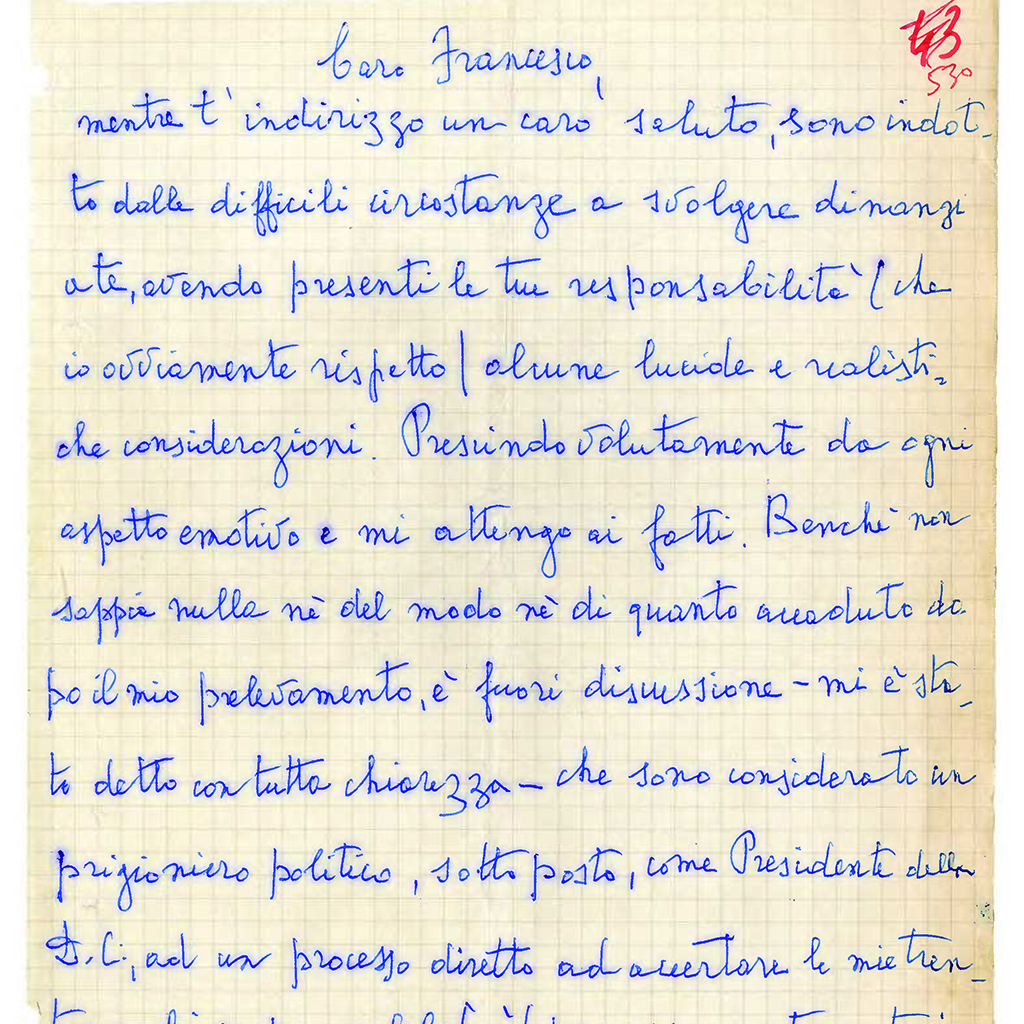 530
Caro Francesco,
mentre t'indirizzo un caro saluto, sono indot-
to dalle difficili circostanze a svolgere dinanzi
a te, avendo presenti le tue responsabilità (che
io ovviamente rispetto) alcune lucide e realisti-
che considerazioni. Prescindo volutamente da ogni
aspetto emotivo e mi attengo ai fatti. Benchè non
sappia nulla nè del modo nè di quanto accaduto do
po il mio prelevamento, è fuori discussione - mi è sta-
to detto con tutta chiarezza - che sono considerato un
prigioniero politico, sottoposto, come Presidente della
D.C., ad un processo diretto ad accertare le mie tren-